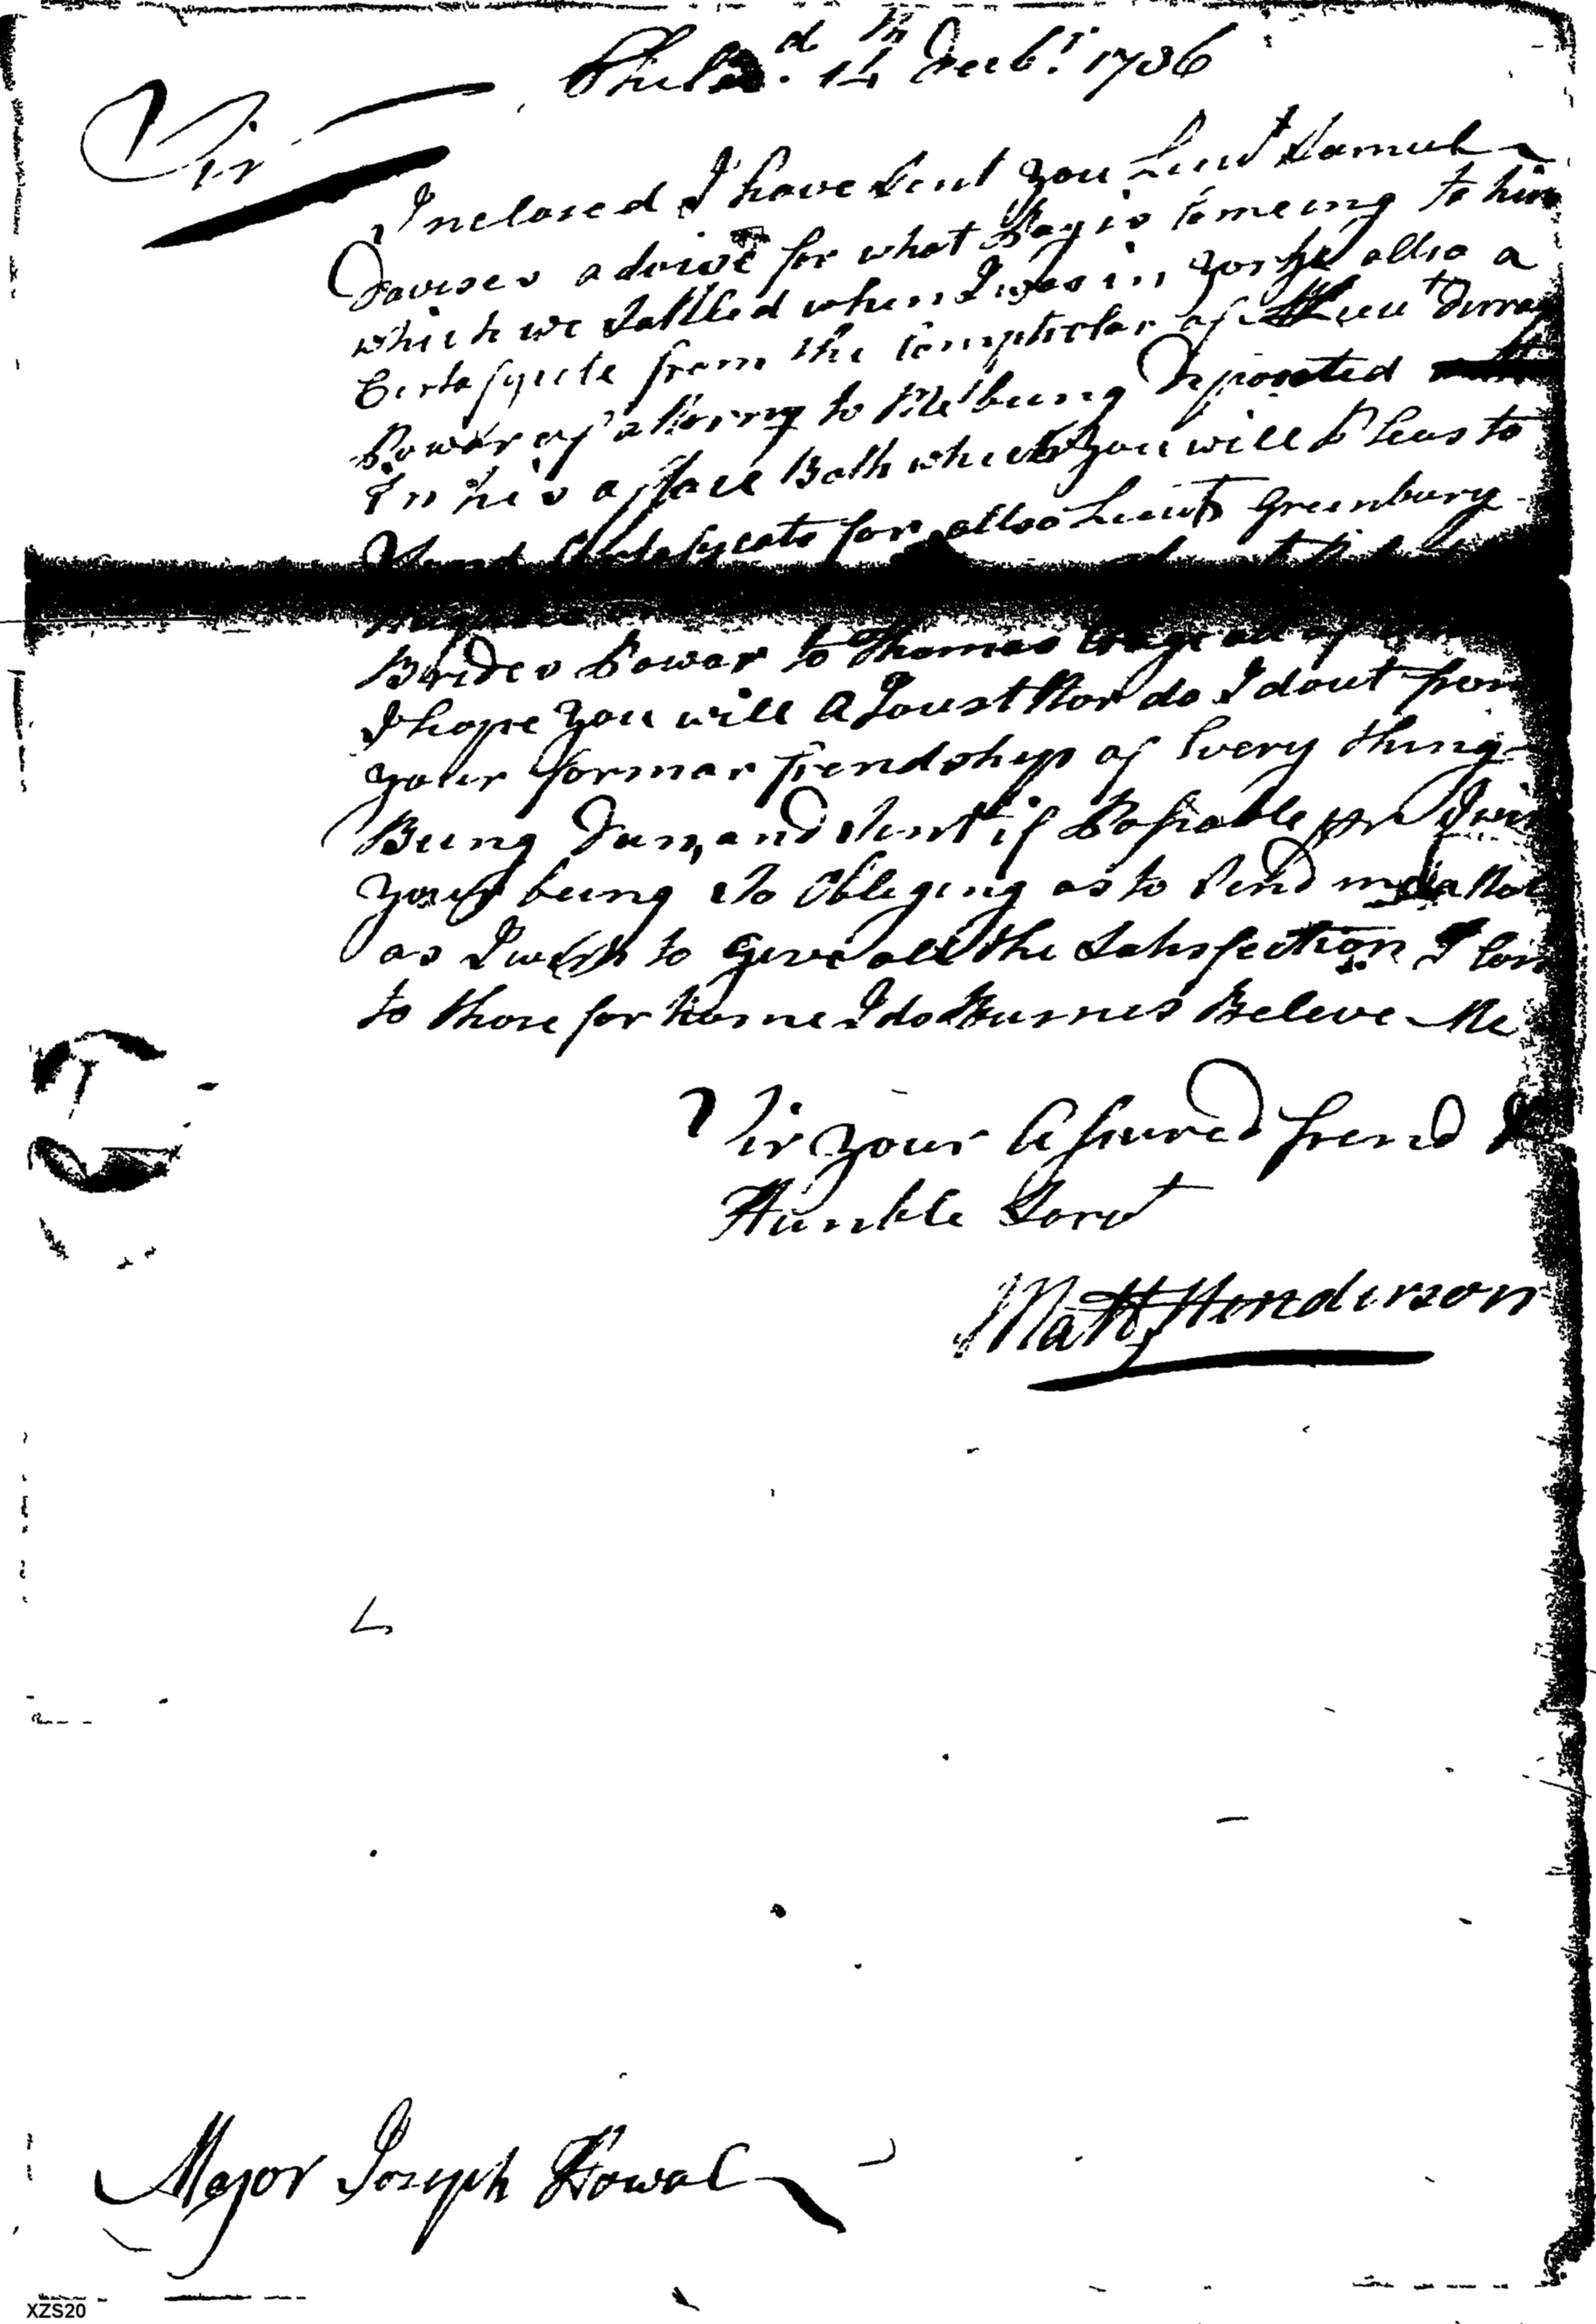 Philad. 14th Decbr. 1786
Sir
Inclosed I have Sent you Lieut Samul
Davises advise for what Pay is comeing to him
which we Sattled when I was in York allso a
Certafycate from the Comptrolar of Lieut
Power of attorny to Me being Deposeted
In his offace Both which you will Pleas to
Certafycate for allso Lieut Greenbury
Power to Thomas all of
I hope you will AJoust Nor do I dout from
your formar frendship of Every thing
Being Dun, and Sent if Posable pr
your being So Obleging as to Send me
as I wish to Give all the Satisfection I
to those for home I do Busnes Beleve Me
Sir your Assured frend &
Humble Sarvt
Matt Henderson
Major Joseph Howal
XZS20